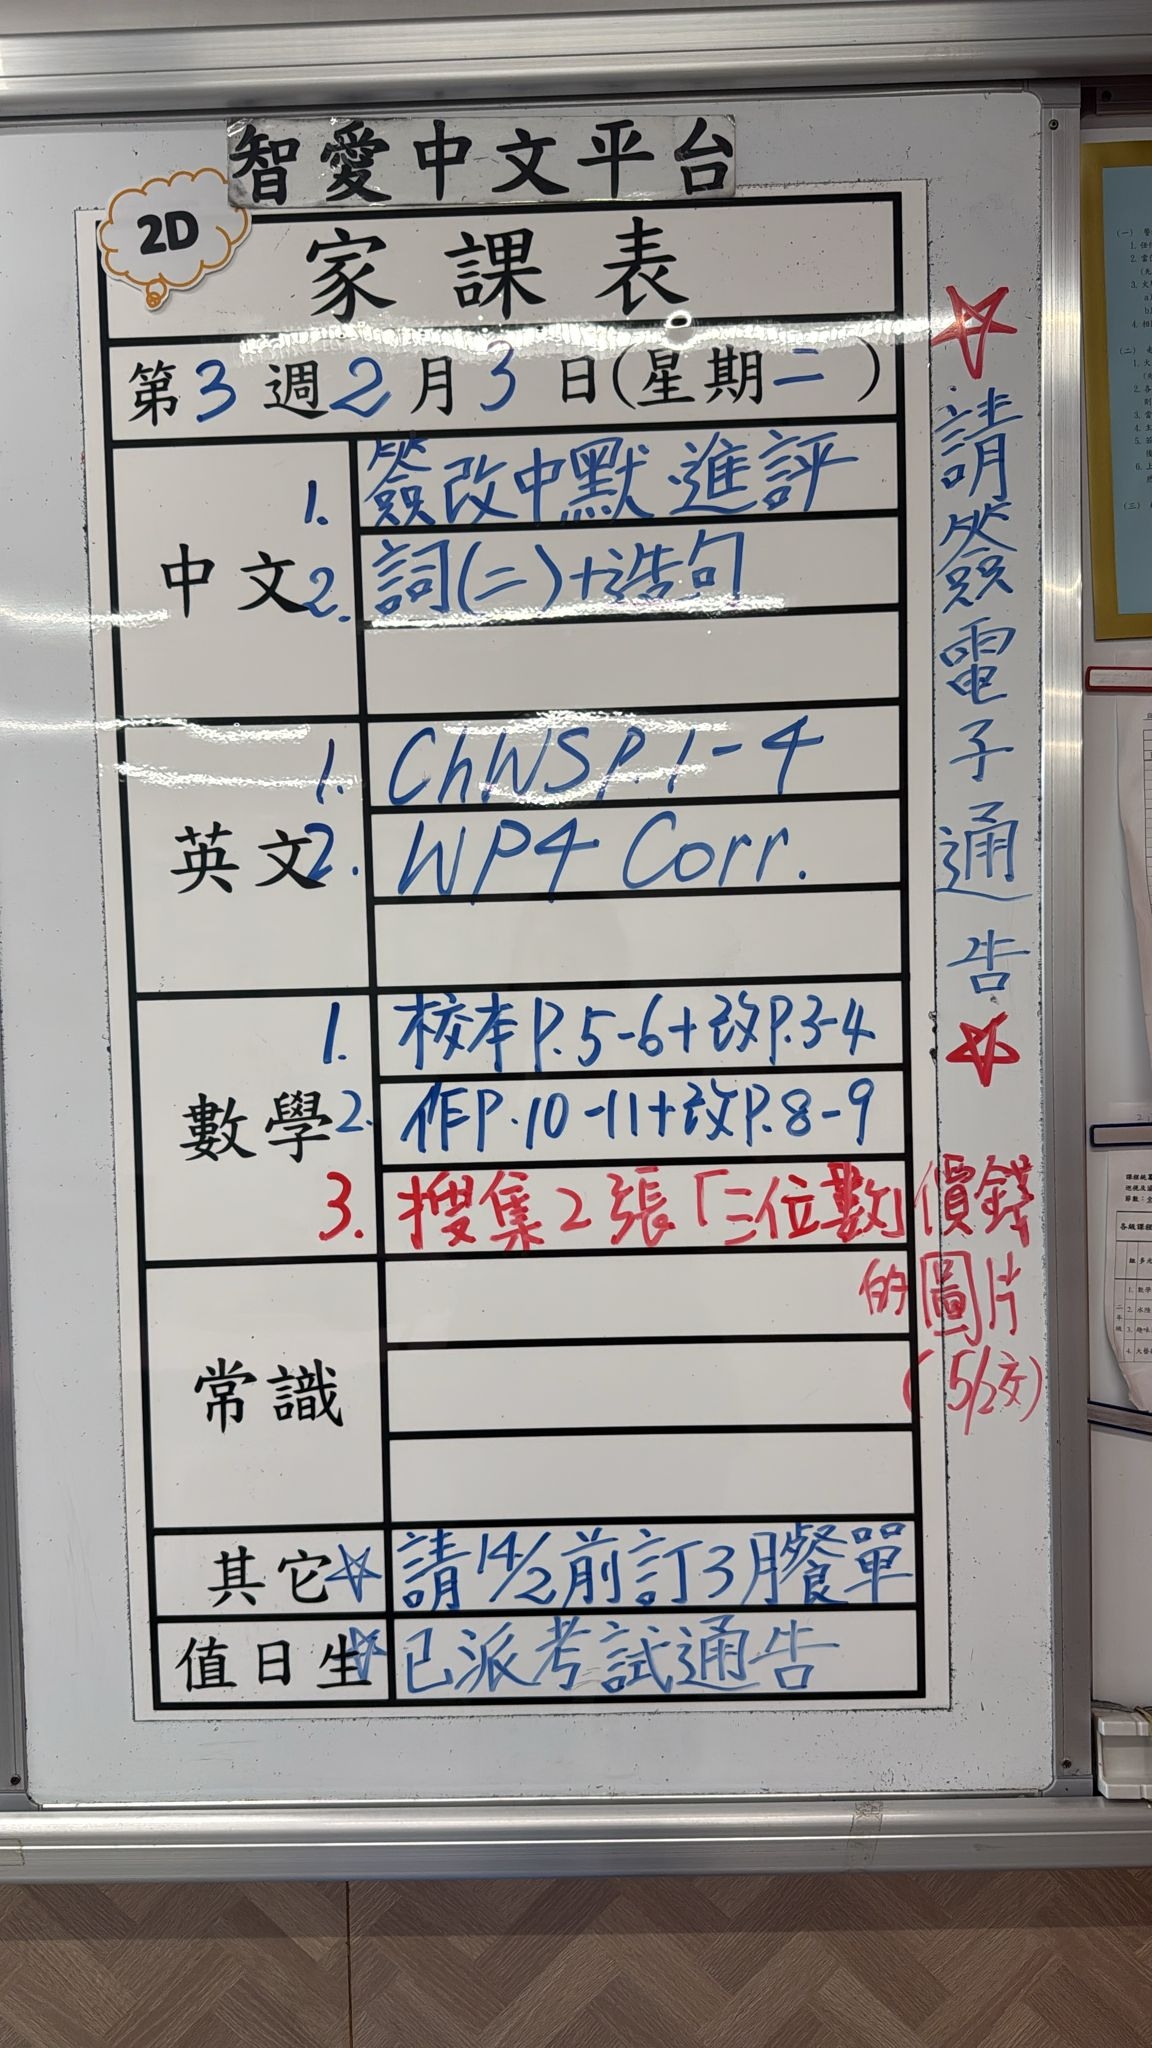 智愛中文平台
2D
家課表
第3週2月3日(星期二)
中文
1. 簽改中默、進評
2. 詞(二)+造句
英文
1. ChWS P.1-4
2. WP4 Corr.
數學
1. 校本P.5-6+改P.3-4
2. 作P.10-11+改P.8-9
3. 搜集2張「三位數」價錢
的圖片
(5/2交)
常識
其它
☆請14/2前訂3月餐單
值日生
☆已派考試通告
☆請簽電子通告☆